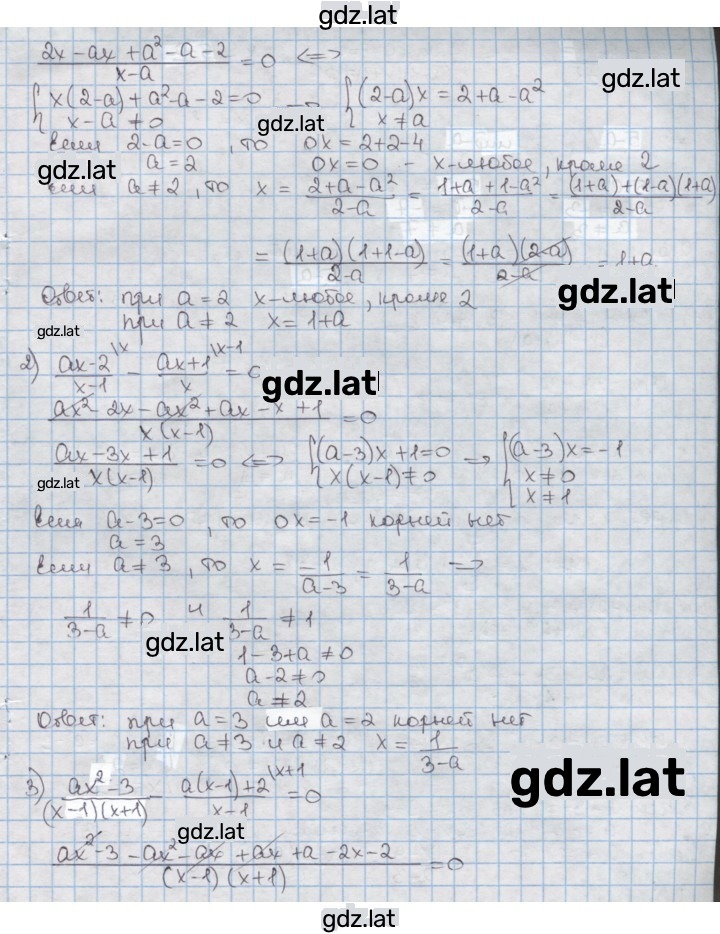 gdz.lat
(2x - ax + a² - a - 2)/(x - a) = 0 <=>
gdz.lat
{ x(2-a) + a² - a - 2 = 0 → { (2-a)x = 2 + a - a²
x - a ≠ 0 gdz.lat x ≠ a
если 2-a=0, то 0x = 2+2-4
gdz.lat a = 2 0x = 0 - x-любое, кроме 2
если a ≠ 2, то x = (2+a-a²)/(2-a) = (1+a+1-a²)/(2-a) = ((1+a)+(1-a)(1+a))/(2-a)
= ((1+a)(1+1-a))/(2-a) = ((1+a)(2-a))/(2-a) = 1+a
Ответ: при a = 2 x-любое, кроме 2 gdz.lat
при a ≠ 2 x = 1+a
gdz.lat
2) (ax-2)/(x-1) \x - (ax+1)/x \x-1 = 0
gdz.lat
(ax² - 2x - ax² + ax - x + 1)/(x(x-1)) = 0
(ax - 3x + 1)/(x(x-1)) = 0 <=> { (a-3)x + 1 = 0 → { (a-3)x = -1
gdz.lat x(x-1) ≠ 0 x ≠ 0
x ≠ 1
если a-3=0, то 0x = -1 корней нет
a = 3
если a ≠ 3, то x = -1/(a-3) = 1/(3-a) =>
1/(3-a) ≠ 0 и 1/(3-a) ≠ 1
gdz.lat 1-3+a ≠ 0
a-2 ≠ 0
a ≠ 2
Ответ: при a = 3 или a = 2 корней нет
при a ≠ 3 и a ≠ 2 x = 1/(3-a)
gdz.lat
3) (ax² - 3)/((x-1)(x+1)) - (a(x-1)+2)/(x-1) \x+1 = 0
gdz.lat
(ax² - 3 - ax² - ax + ax + a - 2x - 2)/((x-1)(x+1)) = 0
gdz.lat